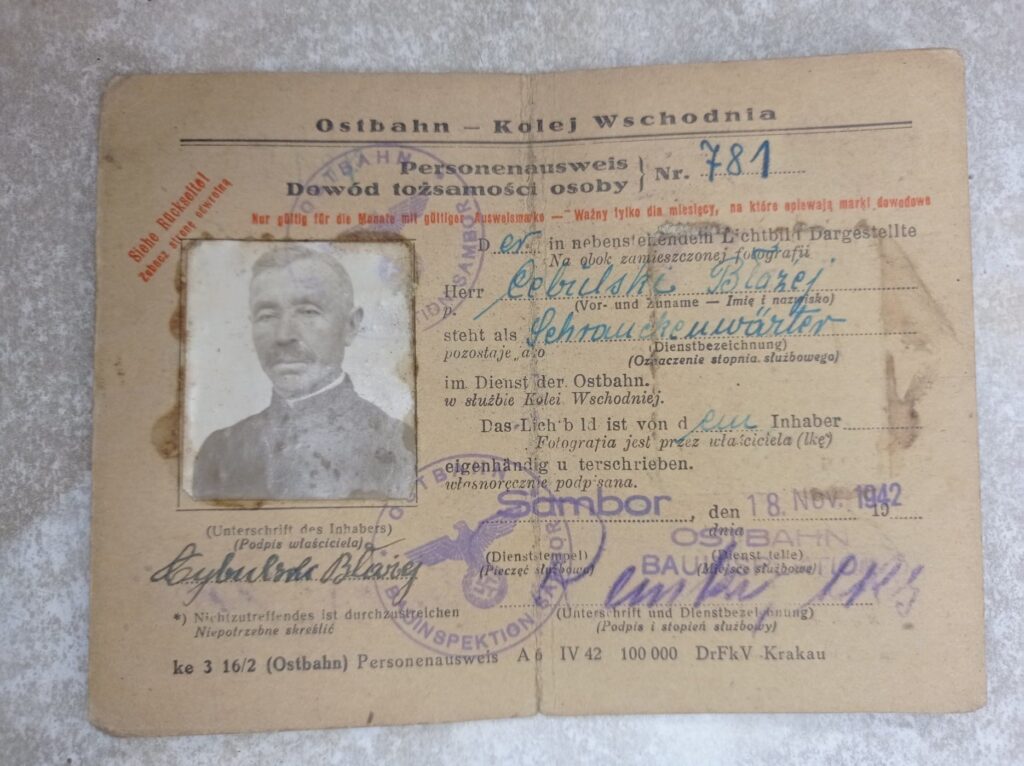 Ostbahn – Kolej Wschodnia
Personenausweis
Dowód tożsamości osoby
Nr. 781
Siehe Rückseite!
Zobacz stronę odwrotną
Nur gültig für die Monate mit gültiger Ausweismarke — Ważny tylko dla miesięcy, na które opiewają marki dowodowe
Der in nebenstehendem Lichtbild Dargestellte
Na obok zamieszczonej fotografii
Herr Cebulski Błażej
p. (Vor- und Zuname — Imię i nazwisko)
steht als Schranckenwärter
pozostaje jako (Dienstbezeichnung)
(Oznaczenie stopnia służbowego)
im Dienst der Ostbahn.
w służbie Kolei Wschodniej.
Das Lichtbild ist von dem Inhaber
Fotografia jest przez właściciela (lkę)
eigenhändig unterschrieben.
własnoręcznie podpisana.
Sambor, den 18. NOV. 1942
dnia
(Unterschrift des Inhabers)
(Podpis właściciela)
Cybulski Błażej
(Dienststempel)
(Pieczęć służbowa)
OSTBAHN
(Dienststelle)
(Miejsce służbowe)
OSTBAHN
BAUINSPEKTION SAMBOR
*) Nichtzutreffendes ist durchzustreichen
Niepotrzebne skreślić
(Unterschrift und Dienstbezeichnung)
(Podpis i stopień służbowy)
ke 3 16/2 (Ostbahn) Personenausweis A 6 IV 42 100 000 DrFkV Krakau